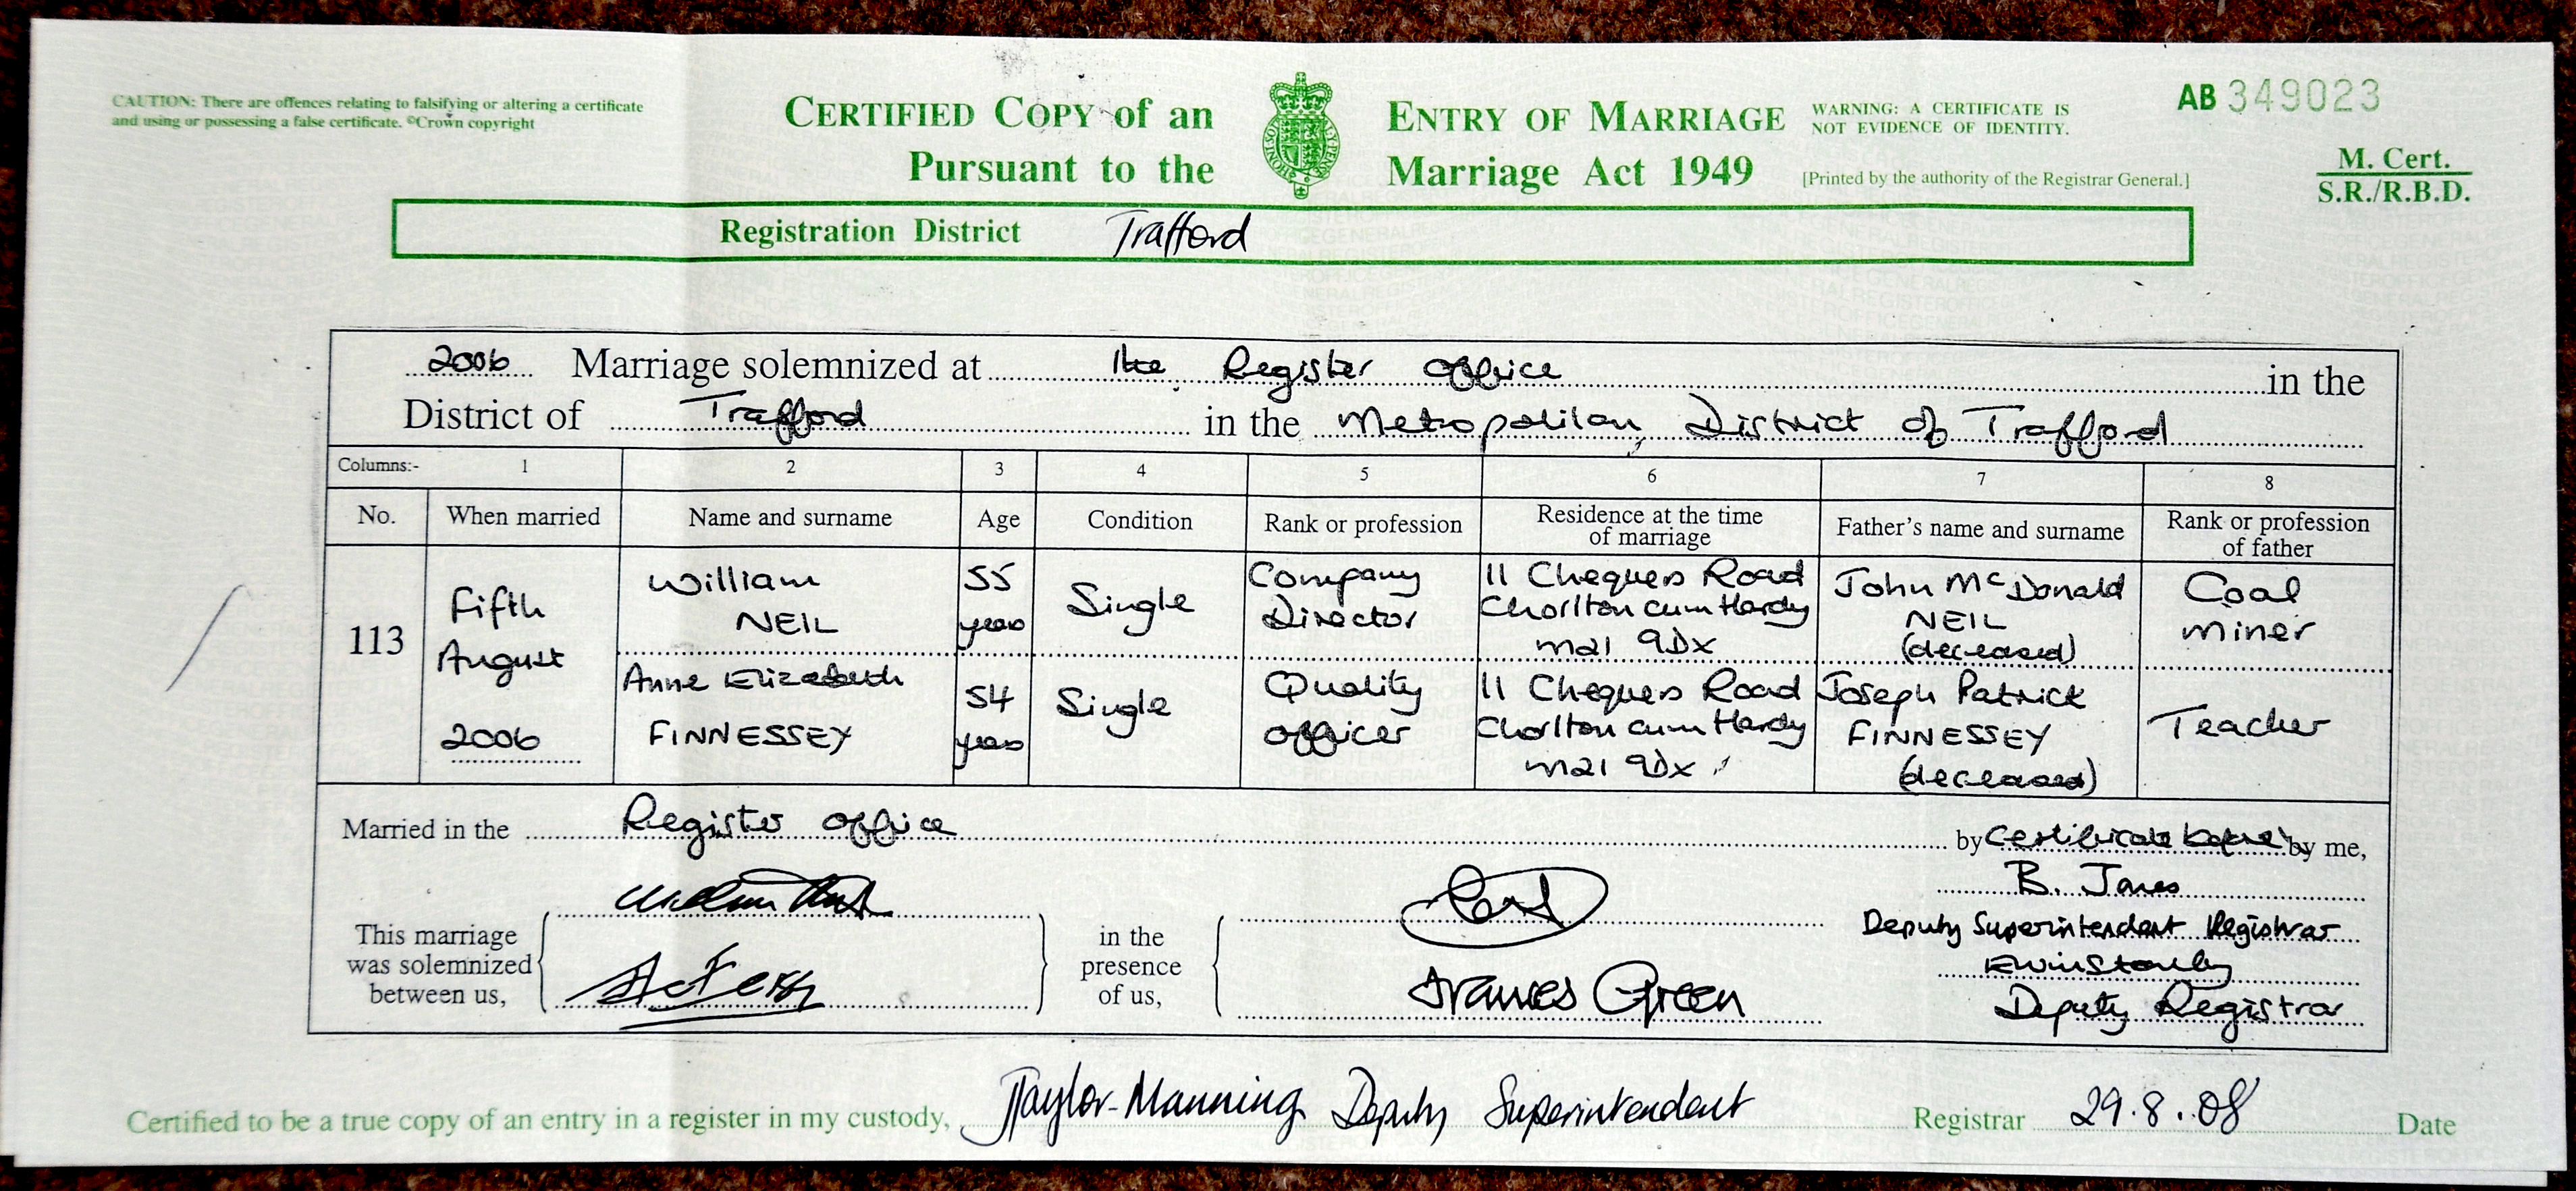 CAUTION: There are offences relating to falsifying or altering a certificate
and using or possessing a false certificate. ©Crown copyright
CERTIFIED COPY of an ENTRY OF MARRIAGE
Pursuant to the Marriage Act 1949
WARNING: A CERTIFICATE IS
NOT EVIDENCE OF IDENTITY.
[Printed by the authority of the Registrar General.]
AB 349023
M. Cert.
S.R./R.B.D.
Registration District Trafford
2006 Marriage solemnized at the Register office in the
District of Trafford in the Metropolitan District of Trafford
Columns:- 1 2 3 4 5 6 7 8
No. When married Name and surname Age Condition Rank or profession Residence at the time of marriage Father's name and surname Rank or profession of father
113
Fifth
August
2006
William
NEIL
55
years
Single
Company
Director
11 Chequers Road
Chorlton cum Hardy
M21 9DX
John McDonald
NEIL
(deceased)
Coal
miner
Anne Elizabeth
FINNESSEY
54
years
Single
Quality
officer
11 Chequers Road
Chorlton cum Hardy
M21 9DX
Joseph Patrick
FINNESSEY
(deceased)
Teacher
Married in the Register office by Certificate before by me,
This marriage
was solemnized
between us,
in the
presence
of us,
Frances Green
B. Jones
Deputy Superintendent Registrar
EWinstanley
Deputy Registrar
Certified to be a true copy of an entry in a register in my custody, JTaylor-Manning Deputy Superintendent Registrar 29.8.08 Date